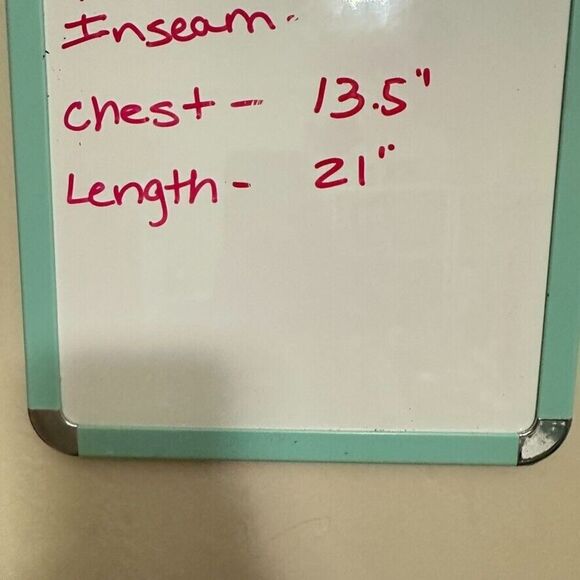 Inseam -
Chest - 13.5"
Length - 21"